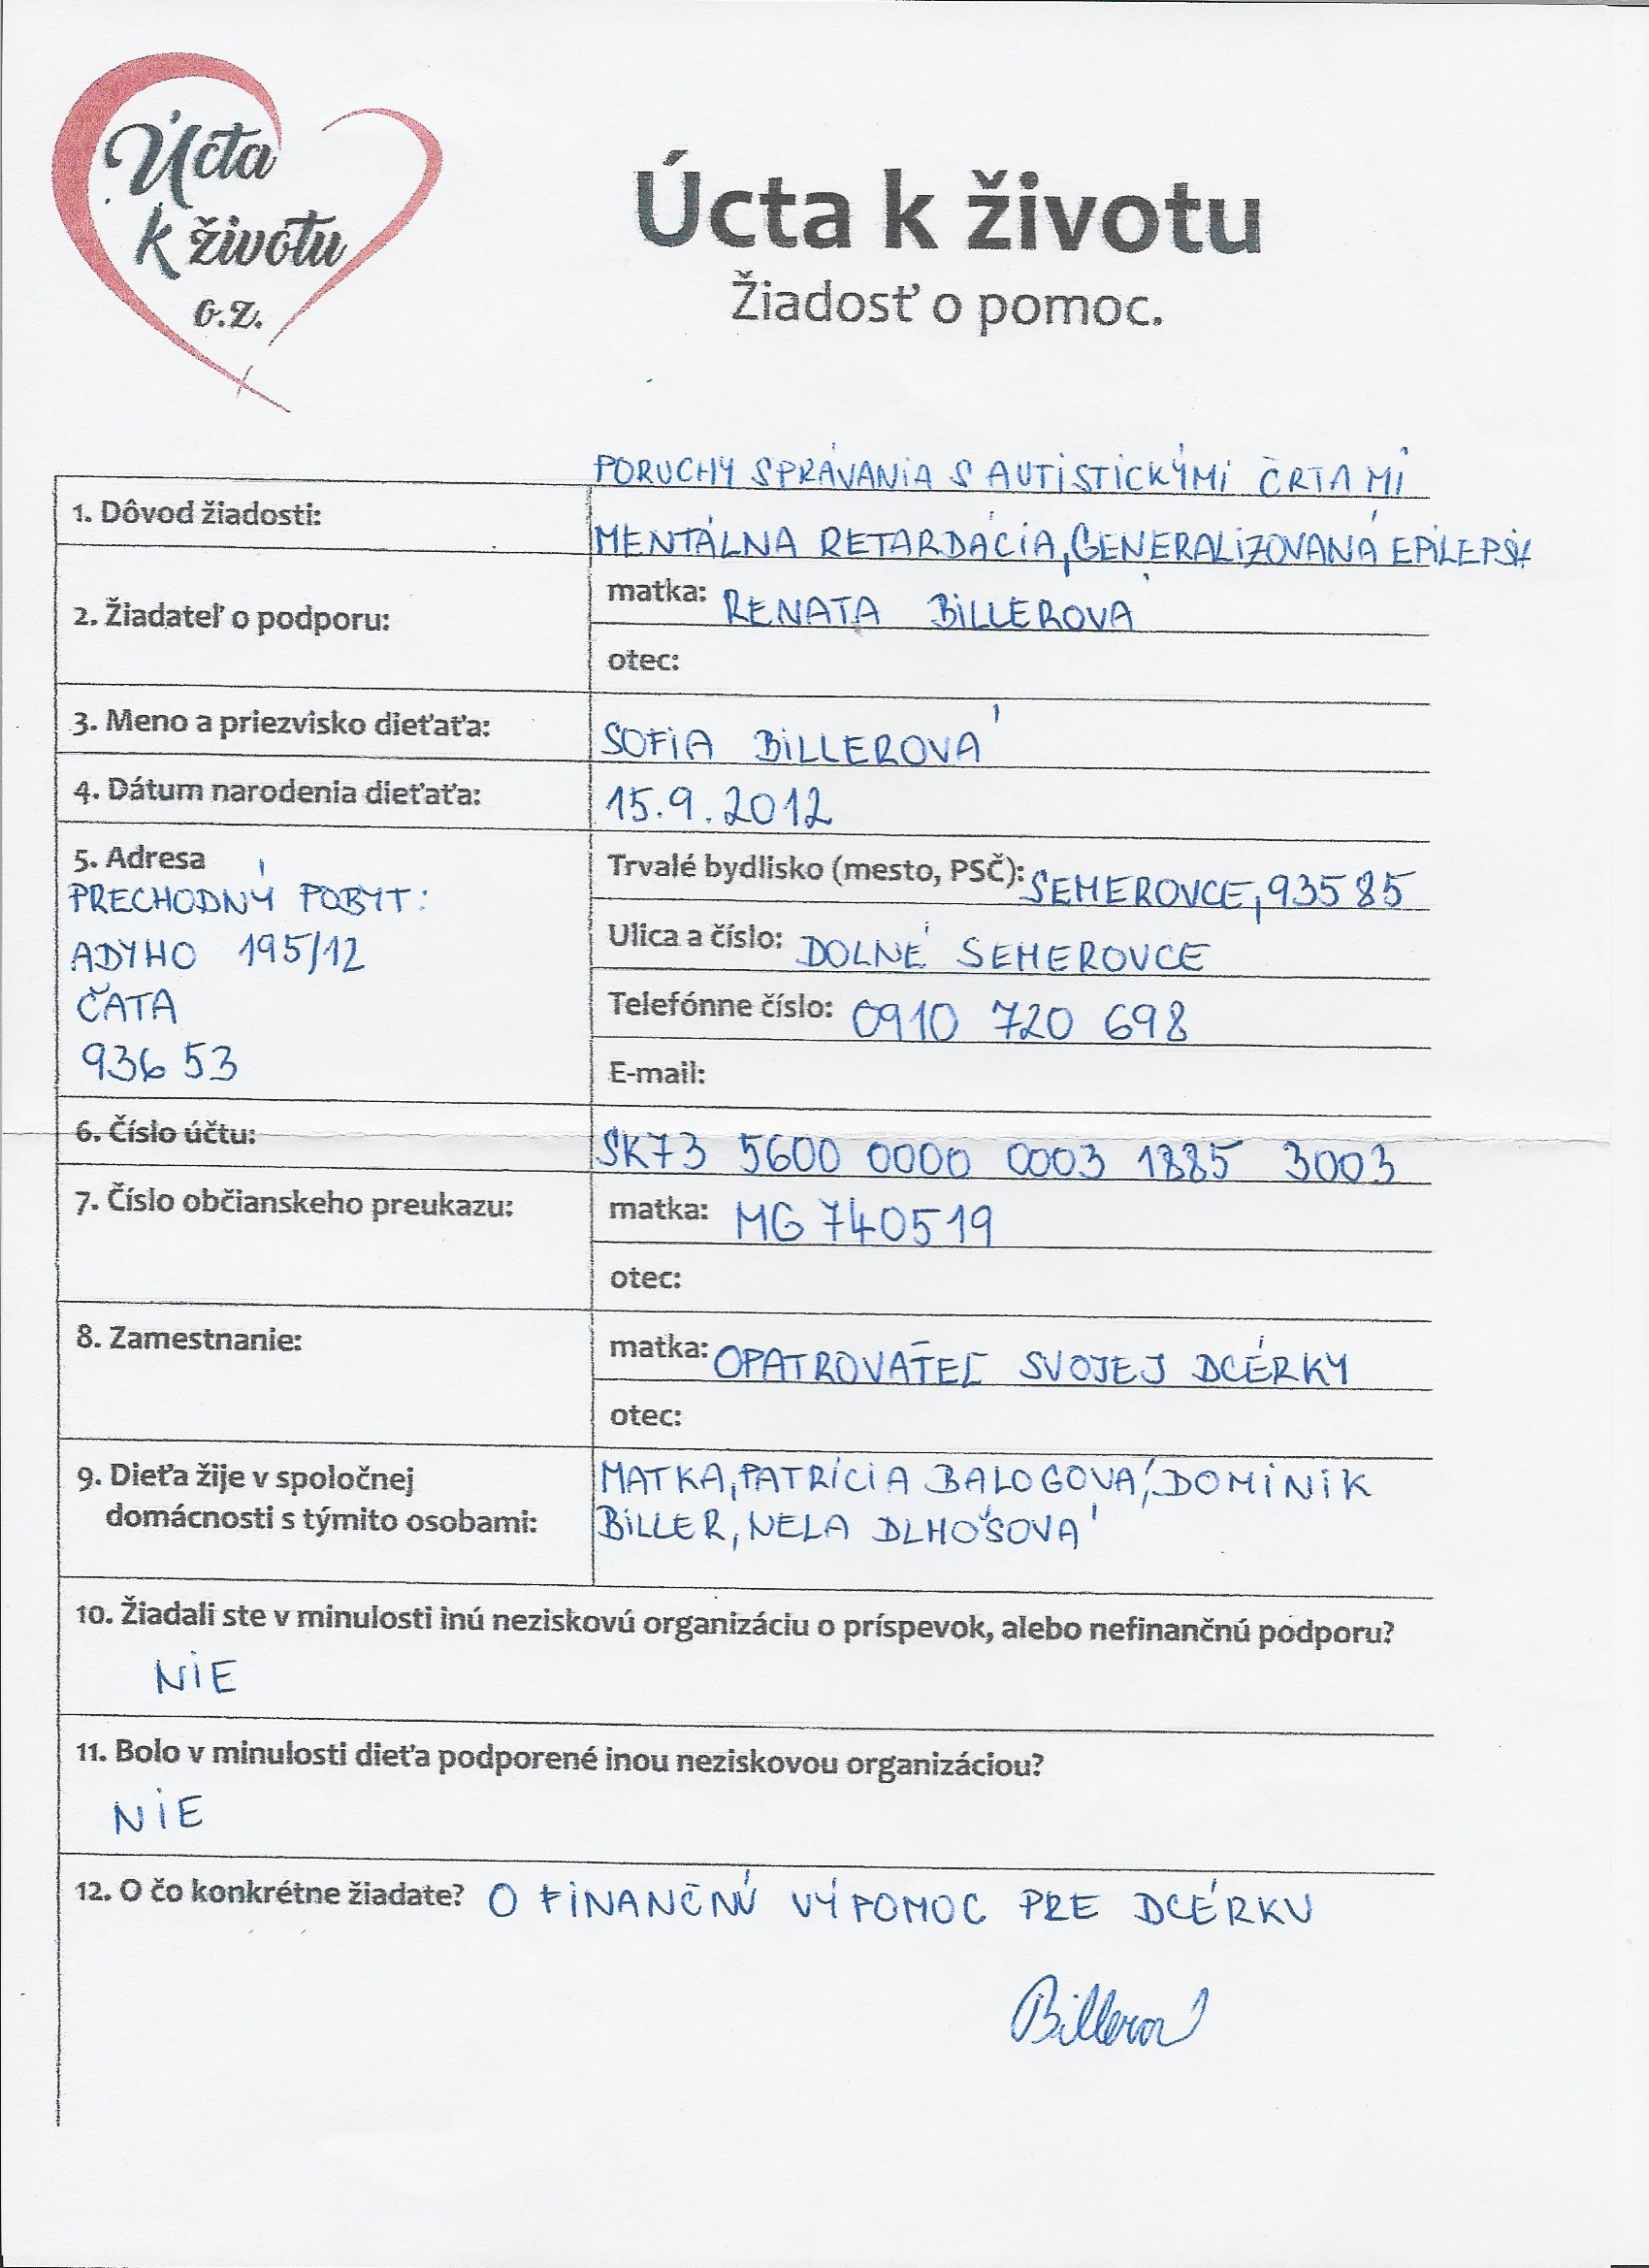 Úcta
k životu
o.z.
Úcta k životu
Žiadosť o pomoc.
PORUCHY SPRÁVANIA S AUTISTICKÝMI ČRTAMI
1. Dôvod žiadosti:
MENTÁLNA RETARDÁCIA, GENERALIZOVANÁ EPILEPSIA
2. Žiadateľ o podporu:
matka: RENATA BILLEROVÁ
otec:
3. Meno a priezvisko dieťaťa: SOFIA BILLEROVÁ
4. Dátum narodenia dieťaťa: 15.9.2012
5. Adresa
PRECHODNÝ POBYT:
ADYHO 195/12
ČATA
936 53
Trvalé bydlisko (mesto, PSČ): SEMEROVCE, 935 85
Ulica a číslo: DOLNÉ SEMEROVCE
Telefónne číslo: 0910 720 698
E-mail:
6. Číslo účtu: SK73 5600 0000 0003 1885 3003
7. Číslo občianskeho preukazu:
matka: MG 740519
otec:
8. Zamestnanie:
matka: OPATROVATEĽ SVOJEJ DCÉRKY
otec:
9. Dieťa žije v spoločnej
domácnosti s týmito osobami:
MATKA, PATRÍCIA BALOGOVÁ, DOMINIK
BILLER, NELA DLHOŠOVÁ
10. Žiadali ste v minulosti inú neziskovú organizáciu o príspevok, alebo nefinančnú podporu?
NIE
11. Bolo v minulosti dieťa podporené inou neziskovou organizáciou?
NIE
12. O čo konkrétne žiadate? O FINANČNÚ VÝPOMOC PRE DCÉRKU
Billerová